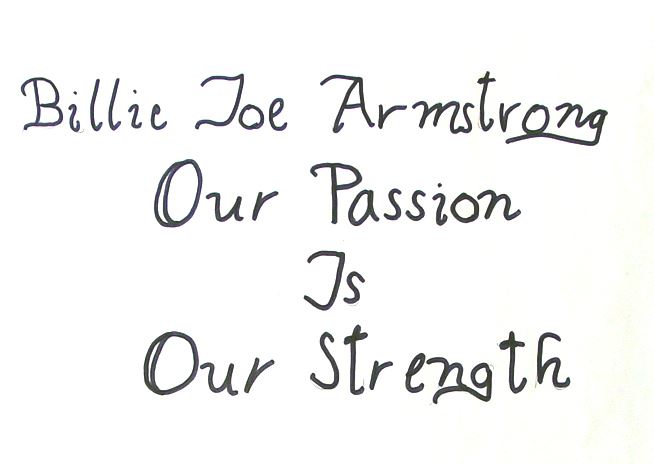 Billie Joe Armstrong
Our Passion
Is
Our Strength